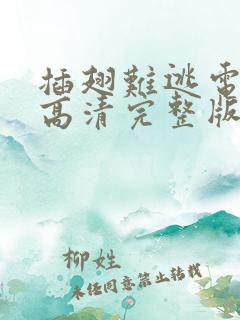 插翅難逃電
高清完整版
柳姓
未经同意禁止转载